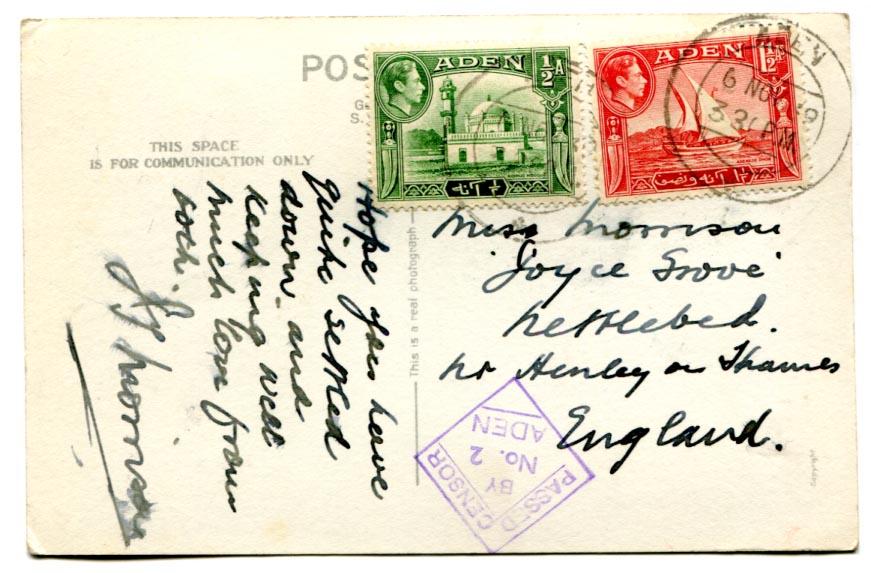 POS
G
S.
THIS SPACE
IS FOR COMMUNICATION ONLY
ADEN ½A
ADEN 1½A
ADEN
6 NOV 39
3 30 PM
Hope you have
quite settled
down and
keeping well
much love from
both.
Morrison
This is a real photograph
Miss Morrison
'Joyce Grove'
Nettlebed.
Nr Henley on Thames
England.
PASSED
BY
CENSOR
No. 2
ADEN
Copyright